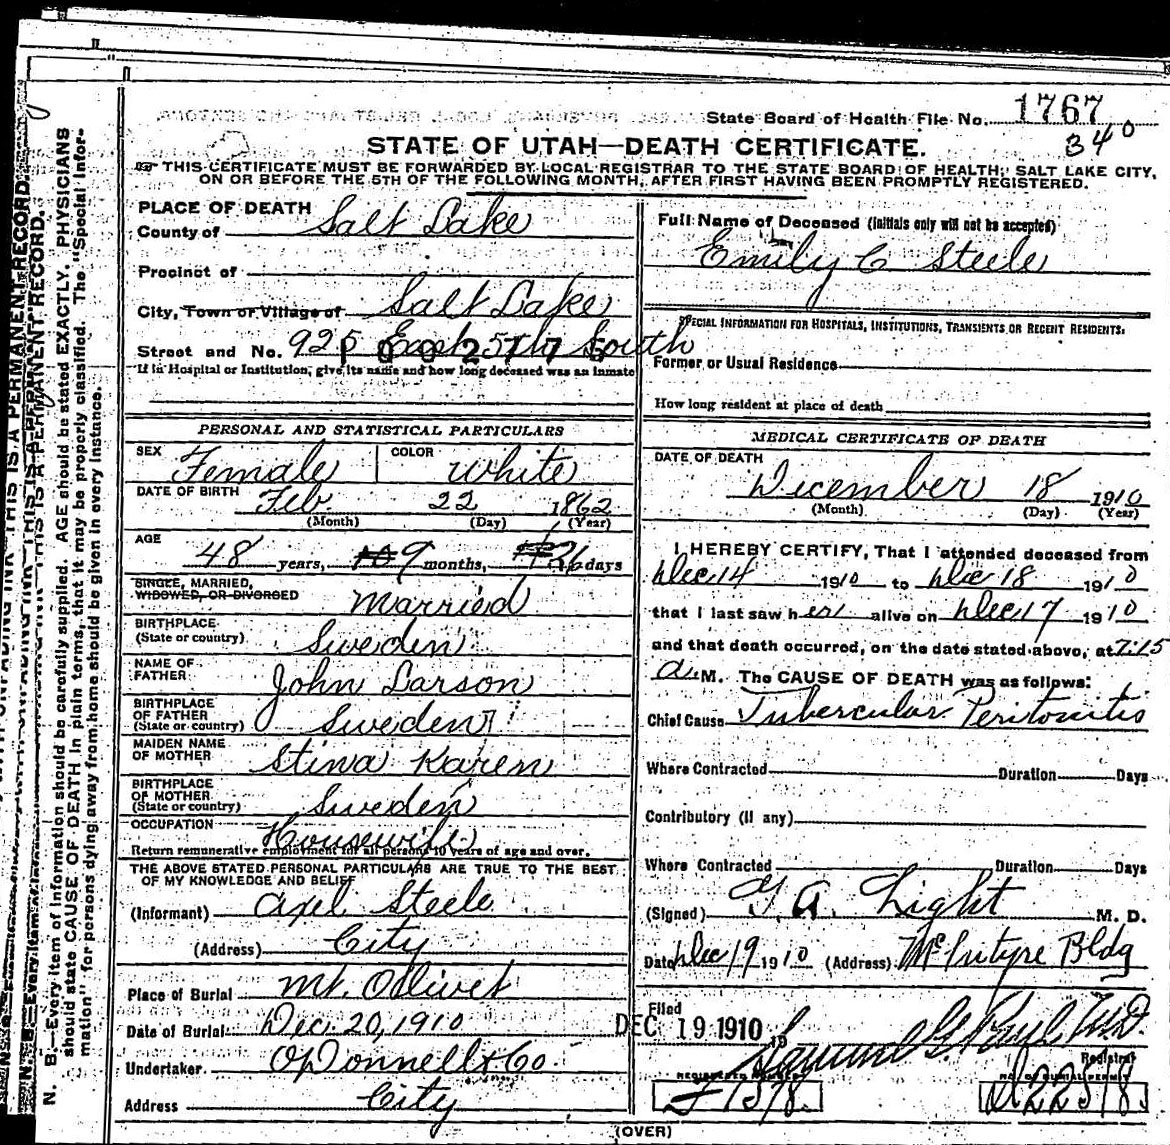 State Board of Health File No. 1767
340
STATE OF UTAH—DEATH CERTIFICATE.
THIS CERTIFICATE MUST BE FORWARDED BY LOCAL REGISTRAR TO THE STATE BOARD OF HEALTH, SALT LAKE CITY,
ON OR BEFORE THE 5TH OF THE FOLLOWING MONTH, AFTER FIRST HAVING BEEN PROMPTLY REGISTERED.
PLACE OF DEATH
County of Salt Lake
Precinct of
City, Town or Village of Salt Lake
Street and No. 925 East 5th South
If in Hospital or Institution, give its name and how long deceased was an inmate
PERSONAL AND STATISTICAL PARTICULARS
SEX Female COLOR White
DATE OF BIRTH Feb. 22 1862
(Month) (Day) (Year)
AGE 48 years, 9 months, 26 days
SINGLE, MARRIED,
WIDOWED, OR DIVORCED Married
BIRTHPLACE
(State or country) Sweden
NAME OF
FATHER John Larson
BIRTHPLACE
OF FATHER
(State or country) Sweden
MAIDEN NAME
OF MOTHER Stina Karen
BIRTHPLACE
OF MOTHER
(State or country) Sweden
OCCUPATION Housewife
Return remunerative employment for all persons 10 years of age and over.
THE ABOVE STATED PERSONAL PARTICULARS ARE TRUE TO THE BEST
OF MY KNOWLEDGE AND BELIEF
(Informant) Axel Steele
(Address) City
Place of Burial Mt. Ollivet
Date of Burial Dec. 20, 1910
Undertaker O'Donnell & Co.
Address City
Full Name of Deceased (Initials only will not be accepted)
Emily C Steele
SPECIAL INFORMATION FOR HOSPITALS, INSTITUTIONS, TRANSIENTS OR RECENT RESIDENTS:
Former or Usual Residence
How long resident at place of death
MEDICAL CERTIFICATE OF DEATH
DATE OF DEATH
December 18 1910
(Month) (Day) (Year)
I HEREBY CERTIFY, That I attended deceased from
Dec 14 1910 to Dec 18 1910
that I last saw her alive on Dec 17 1910
and that death occurred, on the date stated above, at 7:15
a. M. The CAUSE OF DEATH was as follows:
Chief Cause Tubercular Peritonitis
Where Contracted Duration Days
Contributory (if any)
Where Contracted Duration Days
(Signed) G. A. Light M. D.
Date Dec 19 1910 (Address) McIntyre Bldg
Filed
DEC 19 1910 19
Samuel G. Paul M.D.
Registrar
(OVER)
N. B.—Every item of information should be carefully supplied. AGE should be stated EXACTLY. PHYSICIANS
should state CAUSE OF DEATH in plain terms, that it may be properly classified. The "Special Infor-
mation" for persons dying away from home should be given in every instance.